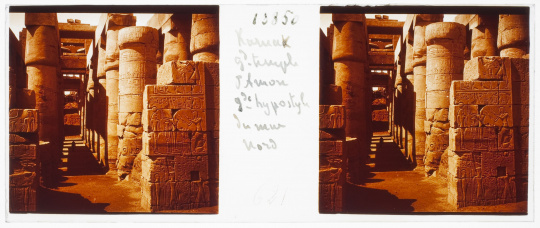 13850
Karnak
gd temple
d'Amon
gde hypostyle
du mur
Nord